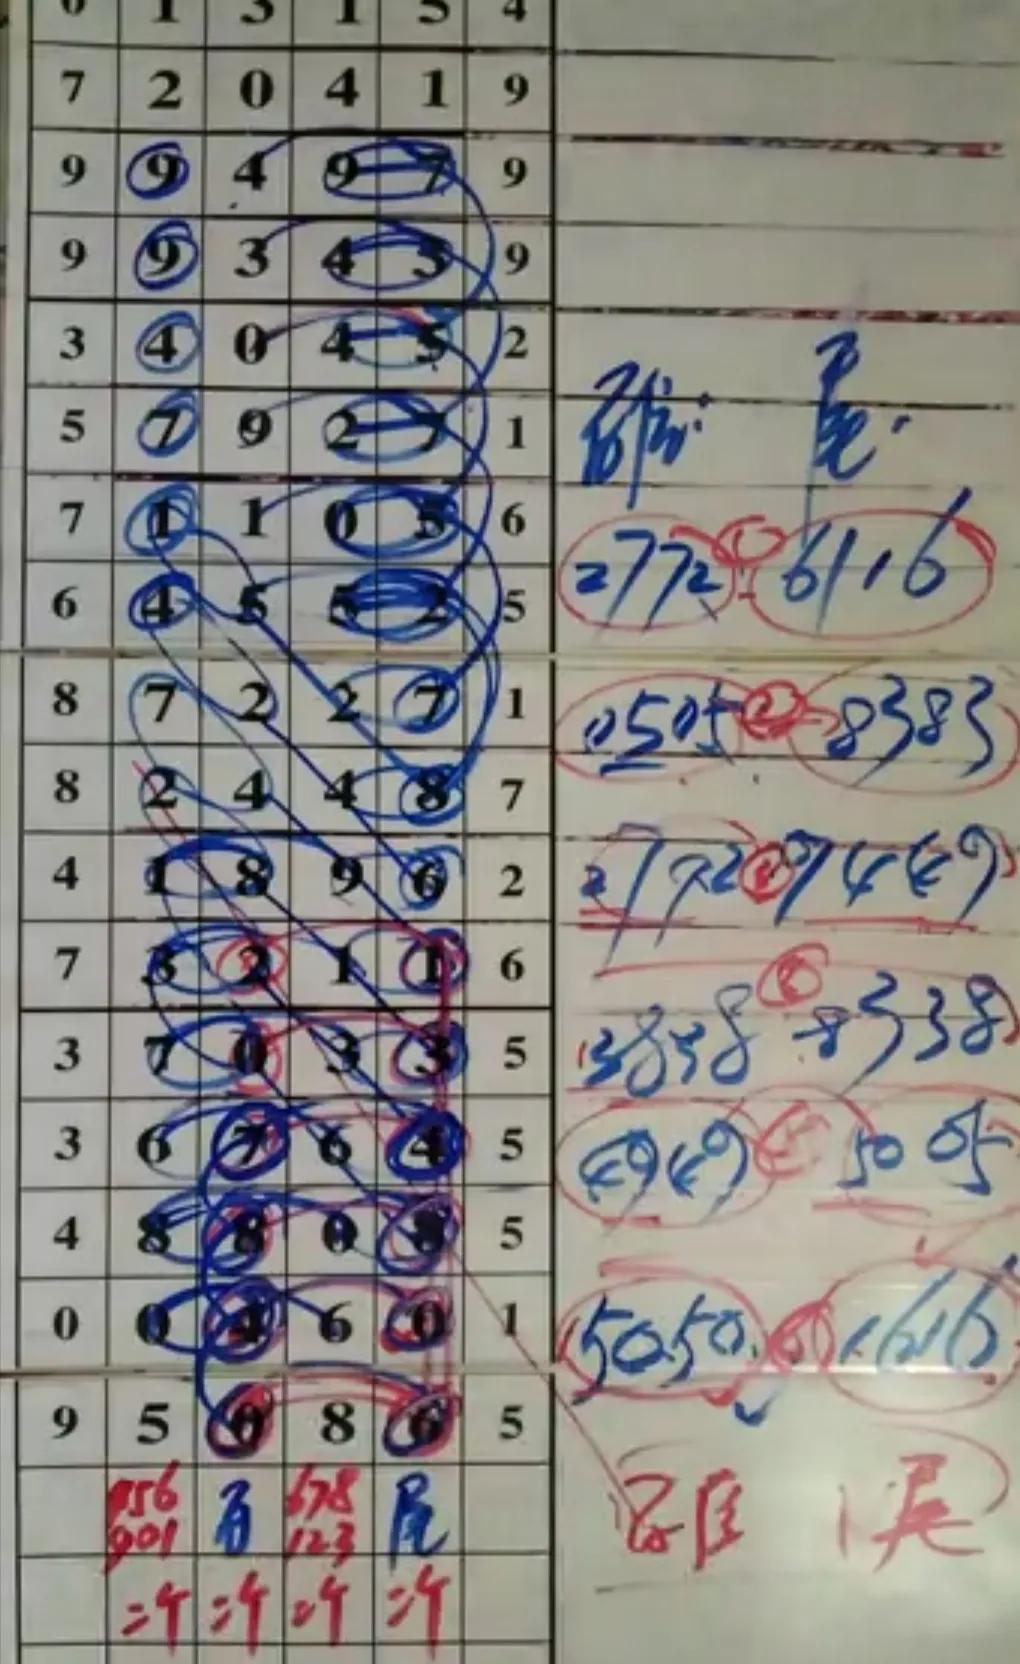 0 1 3 1 5 4
7 2 0 4 1 9
9 9 4 9 7 9
9 9 3 4 5 9
3 4 0 4 5 2
5 7 9 2 7 1
7 1 1 0 5 6
6 4 5 5 2 5
8 7 2 2 7 1
8 2 4 4 8 7
4 1 8 9 6 2
7 3 2 1 1 6
3 7 0 3 3 5
3 6 7 6 4 5
4 8 8 0 8 5
0 0 4 6 0 1
9 5 0 8 6 5
456 百 678 尾
901 123
二个 二个 二个 二个
尾
2772 6116
0505 8383
8338
4949 5005
5050 1616
尾